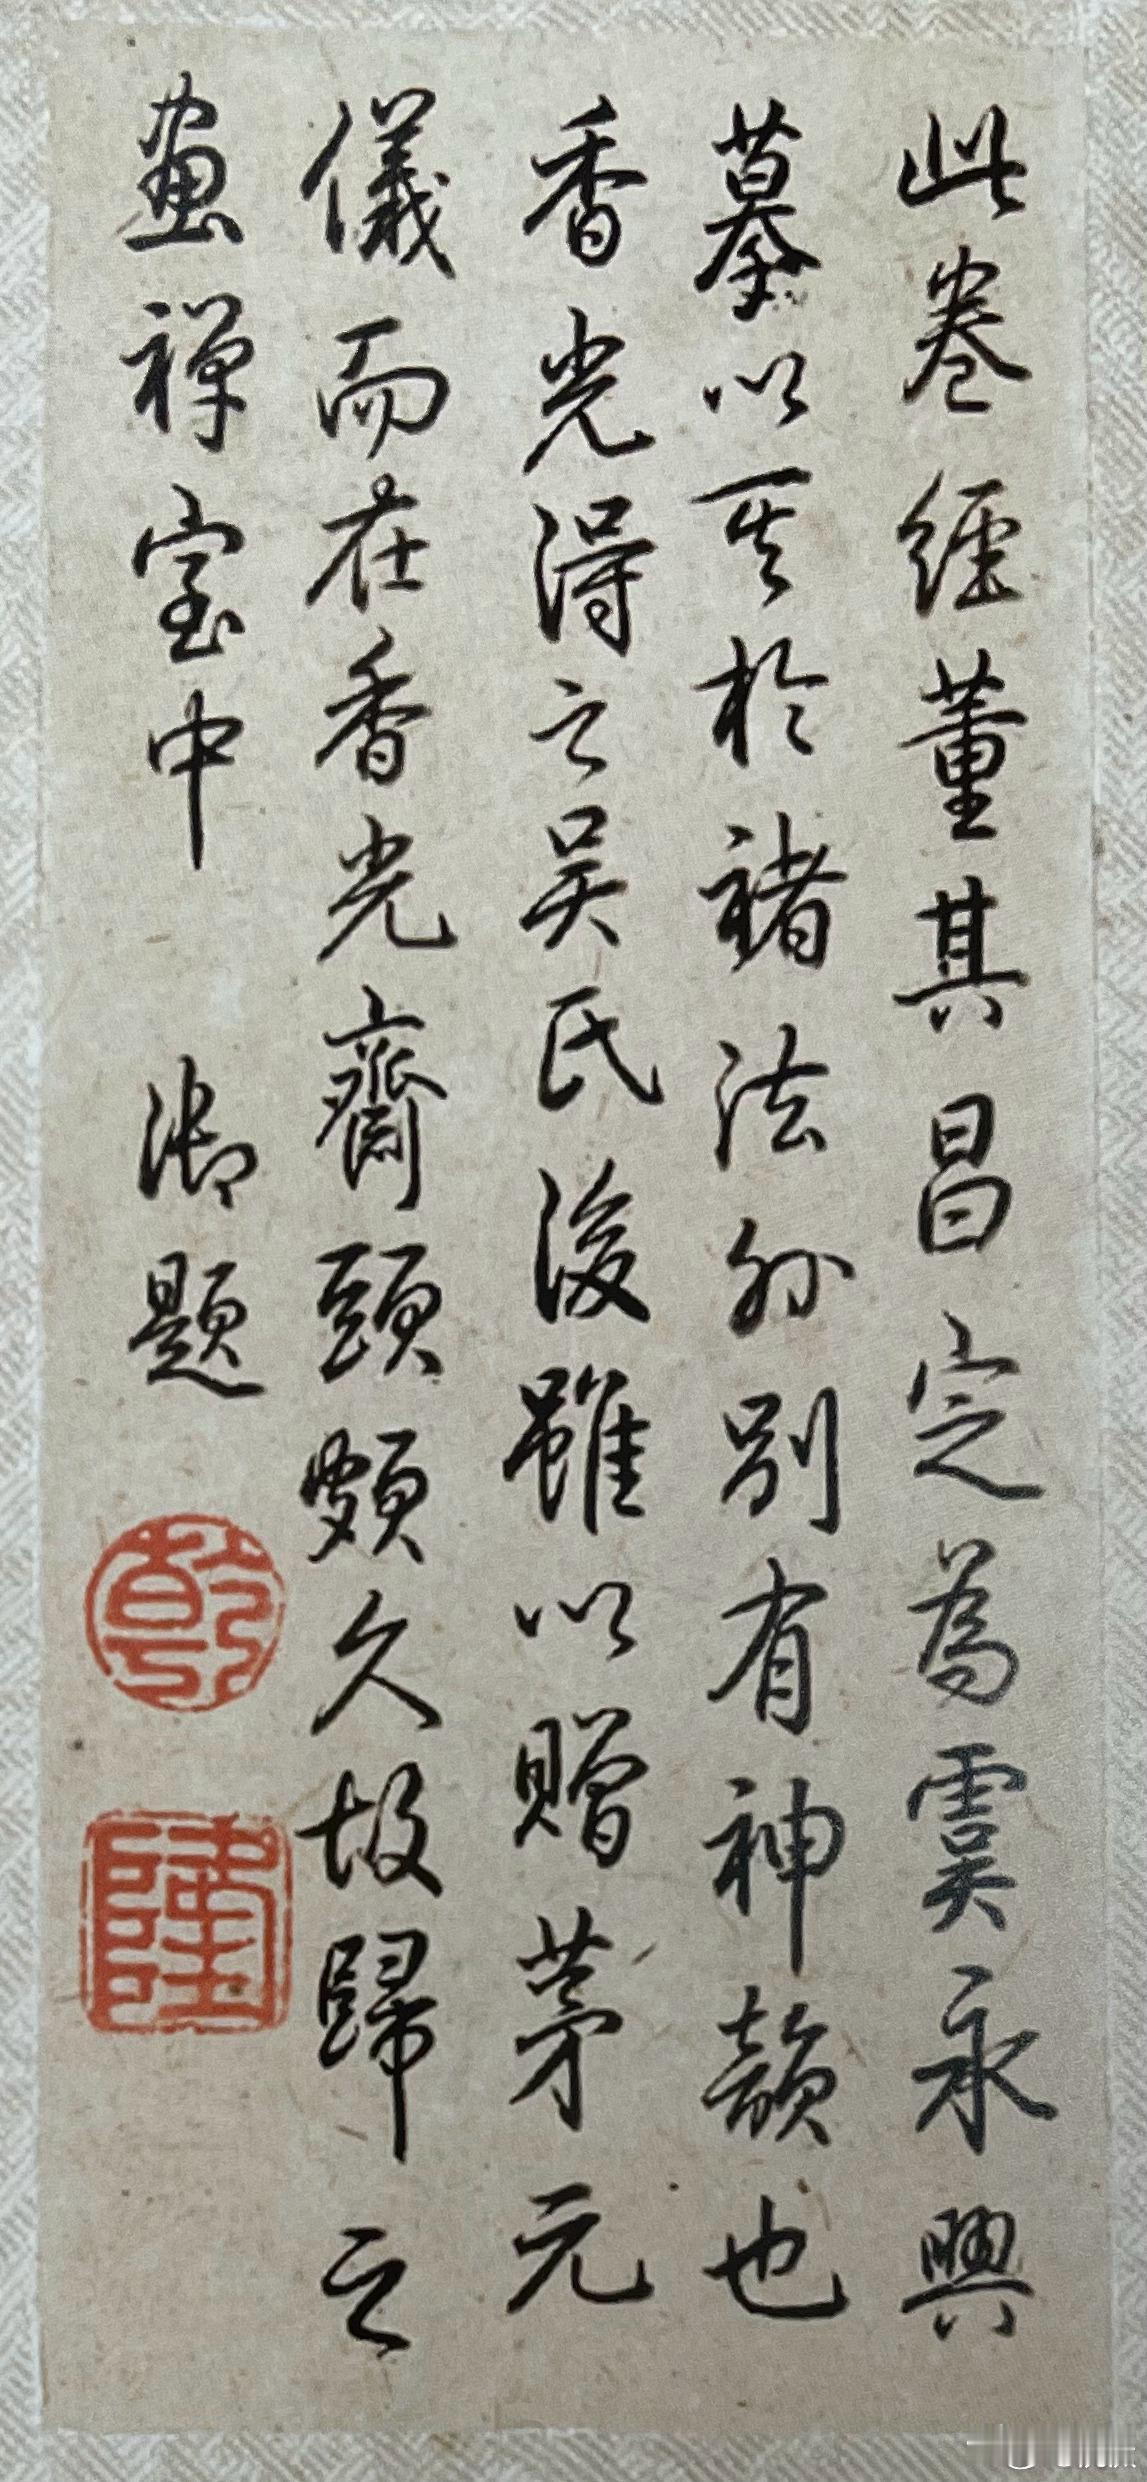 此卷經董其昌定為虞永興
摹以其於褚法外別有神韻也
香光得之吳氏後雖以贈茅元
儀而在香光齋頭頗久故歸之
畫禪室中 御題
乾
隆